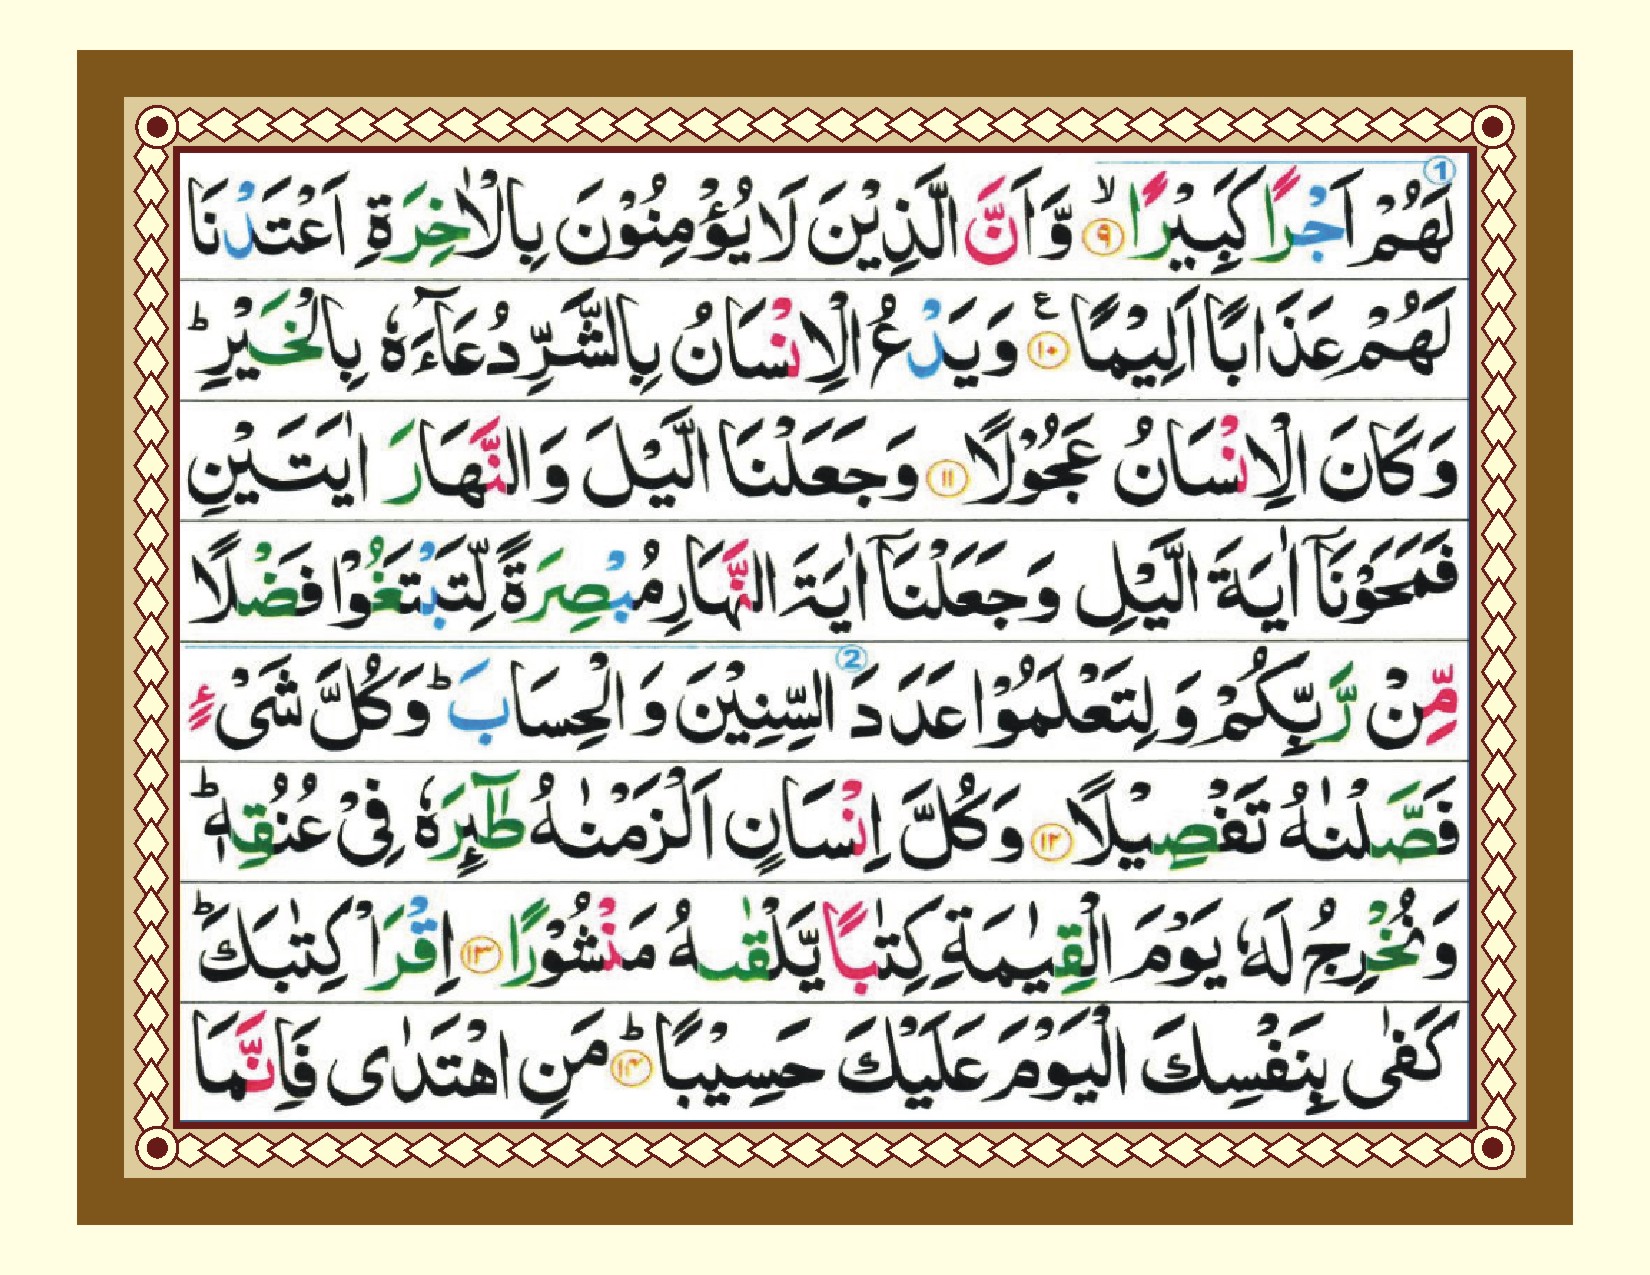 لَهُمْ اَجْرًا كَبِيْرًا ۙ﴿۹﴾ وَّاَنَّ الَّذِيْنَ لَا يُؤْمِنُوْنَ بِالْاٰخِرَةِ اَعْتَدْنَا
لَهُمْ عَذَابًا اَلِيْمًا ﴿۱۰﴾ع وَيَدْعُ الْاِنْسَانُ بِالشَّرِّ دُعَآءَهٗ بِالْخَيْرِ ؕ
وَكَانَ الْاِنْسَانُ عَجُوْلًا ﴿۱۱﴾ وَجَعَلْنَا الَّيْلَ وَالنَّهَارَ اٰيَتَيْنِ
فَمَحَوْنَآ اٰيَةَ الَّيْلِ وَجَعَلْنَآ اٰيَةَ النَّهَارِ مُبْصِرَةً لِّتَبْتَغُوْا فَضْلًا
مِّنْ رَّبِّكُمْ وَلِتَعْلَمُوْا عَدَدَ السِّنِيْنَ وَالْحِسَابَ ؕ وَكُلَّ شَیْءٍ
فَصَّلْنٰهُ تَفْصِيْلًا ﴿۱۲﴾ وَكُلَّ اِنْسَانٍ اَلْزَمْنٰهُ طٰٓئِرَهٗ فِیْ عُنُقِهٖ ؕ
وَنُخْرِجُ لَهٗ يَوْمَ الْقِيٰمَةِ كِتٰبًا يَّلْقٰىهُ مَنْشُوْرًا ﴿۱۳﴾ اِقْرَاْ كِتٰبَكَ ؕ
كَفٰى بِنَفْسِكَ الْيَوْمَ عَلَيْكَ حَسِيْبًا ؕ﴿۱۴﴾ مَنِ اهْتَدٰى فَاِنَّمَا